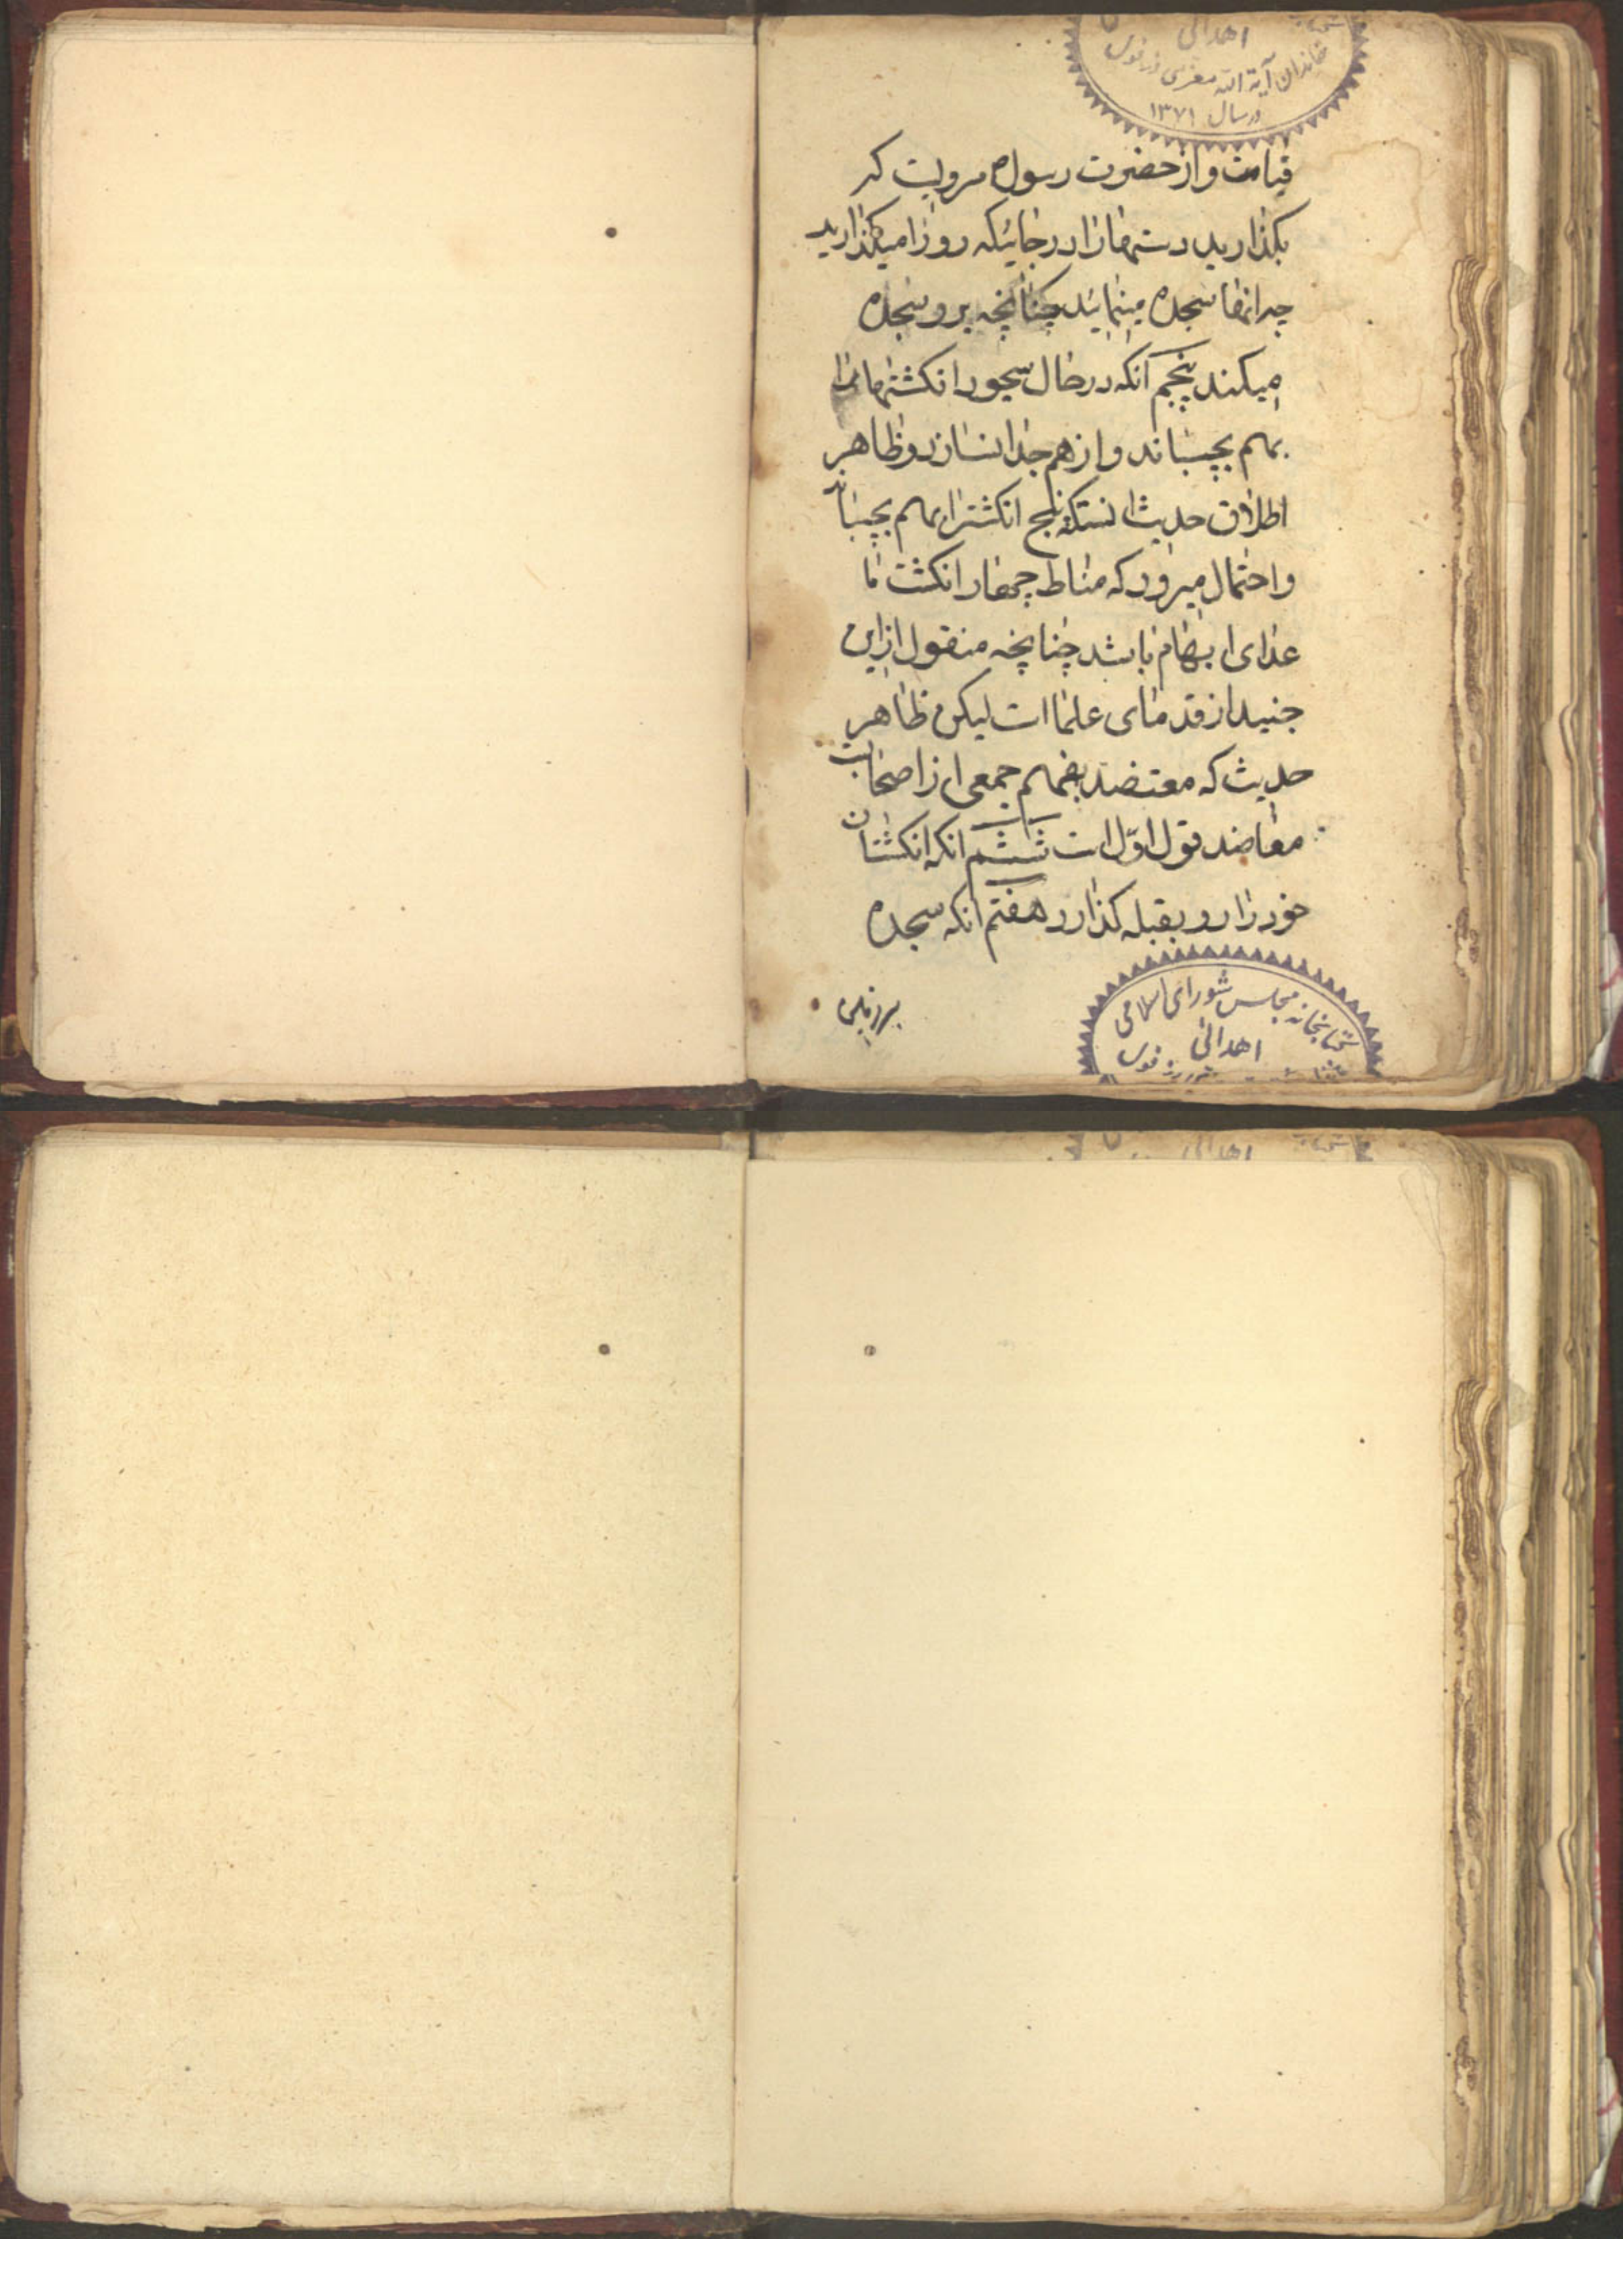 اهدائی
خاندان آیة الله
در سال ۱۳۷۱
قیامت و از حضرت رسول مرویست که
بکذارید دستهارا در جائیکه رو را میکذارید
چه انها سجده مینمایند چنانچه رو سجده
میکند پنجم انکه در حال سجود انکشتها را
بهم بچسباند و از هم جدا نسازد و ظاهر
اطلاق حدیث انستکه پنج انکشترا بهم بچسباند
و احتمال میرود که مناط چهار انکشت ما
عدای ابهام باشد چنانچه منقول از ابن
جنید از قدمای علما است لیکن ظاهر
حدیث که معتضد بفهم جمعی از اصحابست
معاضد قول اوّل است ششم انکه انکشتان
خود را رو بقبله کذارد هفتم انکه سجده
بر زمین
کتابخانه مجلس شورای اسلامی
اهدائی
اهدائی